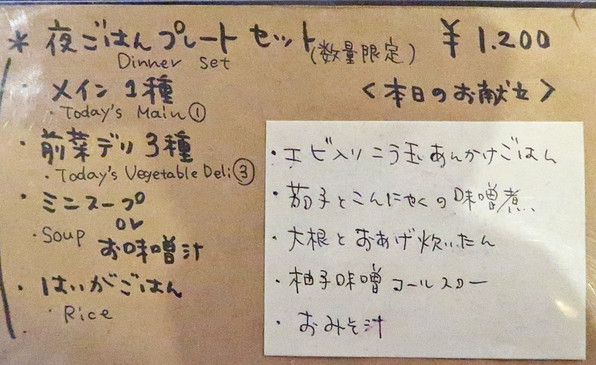 * 夜ごはんプレートセット(数量限定) ¥1.200
Dinner set
・メイン1種
・Today's Main①
・前菜デリ3種
・Today's Vegetable Deli③
・ミニスープ
or
・Soup お味噌汁
・はいがごはん
・Rice
<本日のお献立>
・エビ入りニラ玉あんかけごはん
・茄子とこんにゃくの味噌煮
・大根とおあげ炊いたん
・柚子味噌コールスロー
・おみそ汁